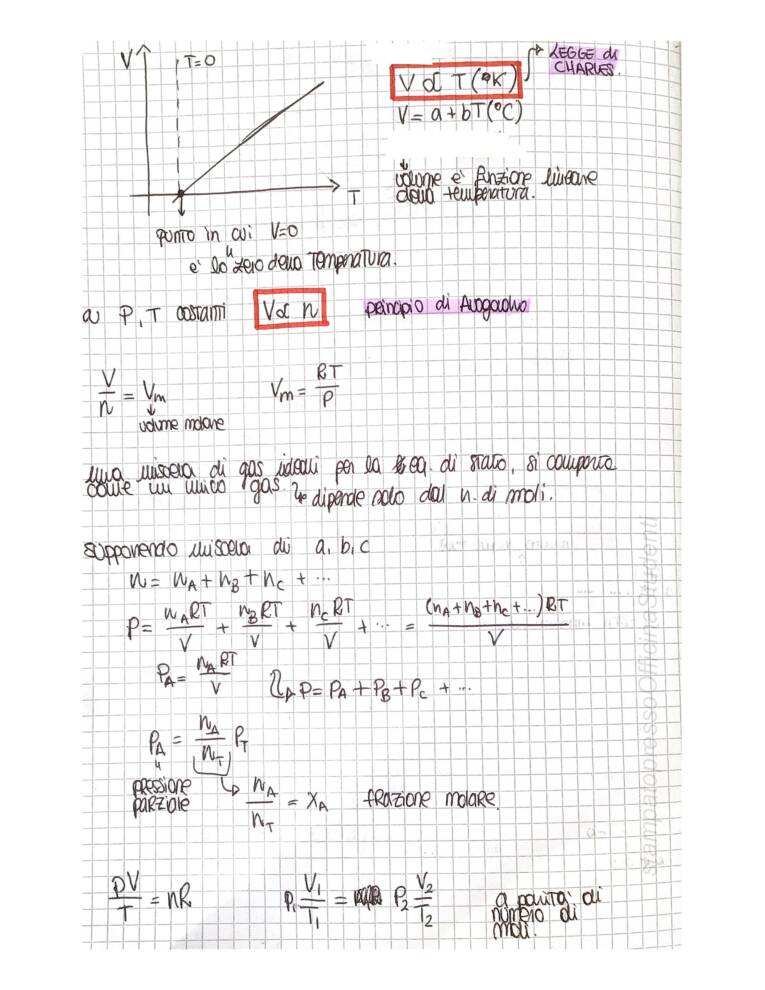 V
T=0
V ∝ T (°K)
LEGGE di
CHARLES.
V = a + bT (°C)
T
volume è funzione lineare
della temperatura.
punto in cui V=0
è lo zero della Temperatura.
a P, T costanti V ∝ n principio di Avogadro
V/n = Vm
Vm = RT/P
volume molare
una miscela di gas ideali per la eq. di stato, si comporta
come un unico gas. dipende solo dal n. di moli.
supponendo miscela di a, b, c
n = nA + nB + nC + ...
P = nART/V + nBRT/V + nCRT/V + ... = (nA + nB + nC + ...) RT/V
PA = nART/V P = PA + PB + PC + ...
PA = nA/nT PT
pressione
parziale
nA/nT = XA frazione molare.
PV/T = nR
P1 V1/T1 = P2 V2/T2
a parità di
numero di
moli.
stampatopressoOfficinaStudenti